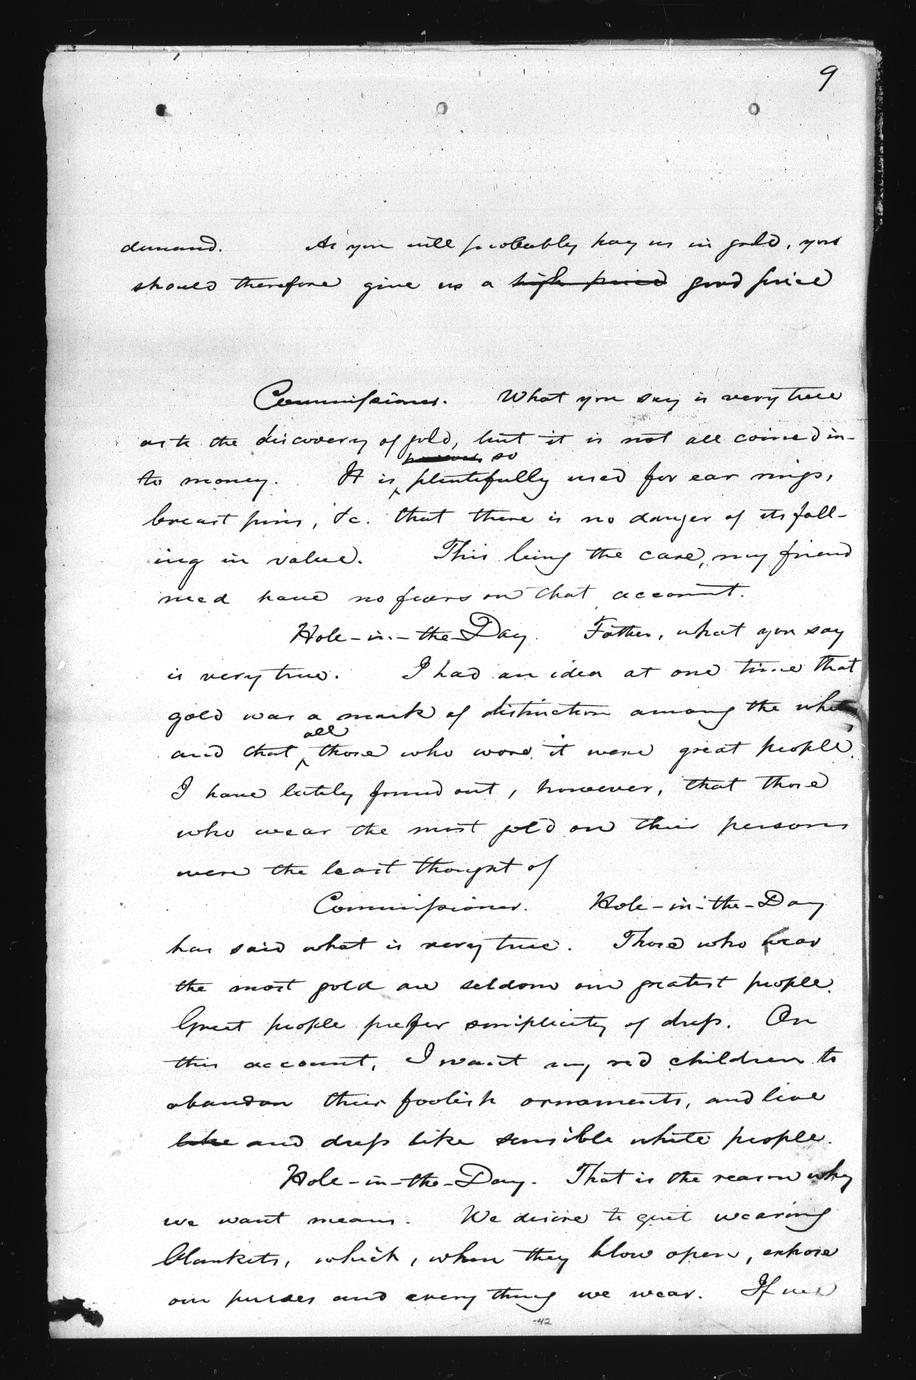 9
demand. As you will probably pay us in gold, you
should therefore give us a high price good price
Commissioner. What you say is very true
as to the discovery of gold, but it is not all coined in-
so
to money. It is plentifully used for ear rings,
breast pins, &c. that there is no danger of its fall-
ing in value. This being the case, my friend
need have no fears on that account.
Hole-in-the-Day. Father, what you say
is very true. I had an idea at one time that
gold was a mark of distinction among the whites
all
and that those who wore it were great people.
I have lately found out, however, that those
who wear the most gold on their persons
were the least thought of
Commissioner. Hole-in-the-Day
has said what is very true. Those who wear
the most gold are seldom our greatest people.
Great people prefer simplicity of dress. On
this account, I want my red children to
abandon their foolish ornaments, and live
like and dress like sensible white people.
Hole-in-the-Day. That is the reason why
we want means. We desire to quit wearing
blankets, which, when they blow open, expose
our purses and every thing we wear. If we
-42